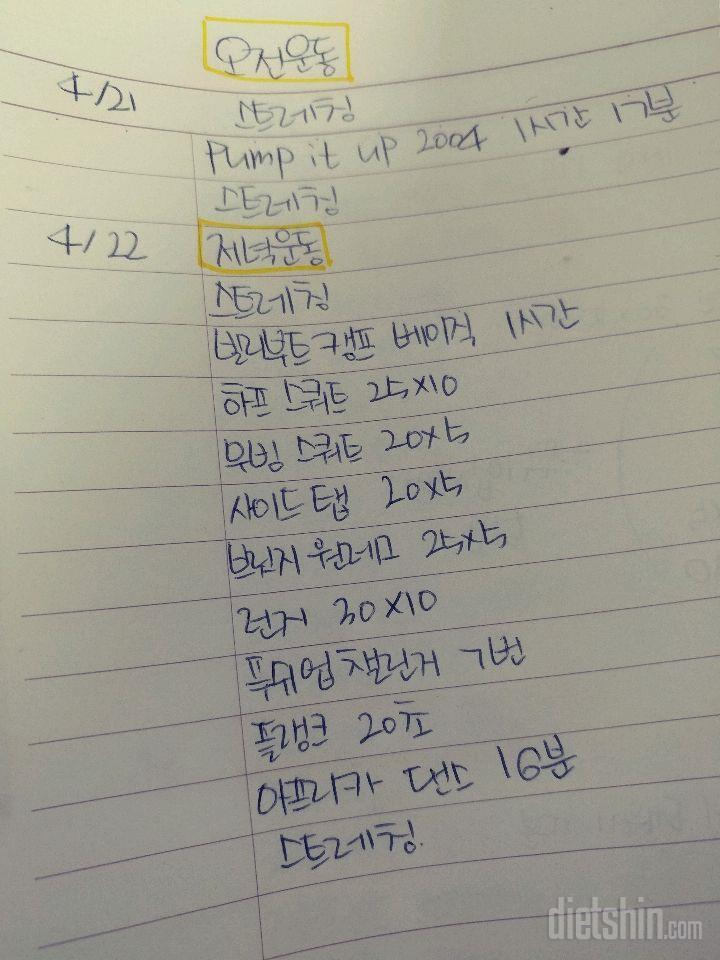 오전운동
4/21 스트레칭
Pump it up 2004 1시간 17분
스트레칭
4/22 저녁운동
스트레칭
빌리부트캠프 베이직 1시간
하프 스쿼트 25x10
무빙 스쿼트 20x5
사이드탭 20x5
브릿지 원레그 25x5
런지 30x10
푸쉬업챌린거 7번
플랭크 20초
아프리카 댄스 16분
스트레칭.
dietshin.com